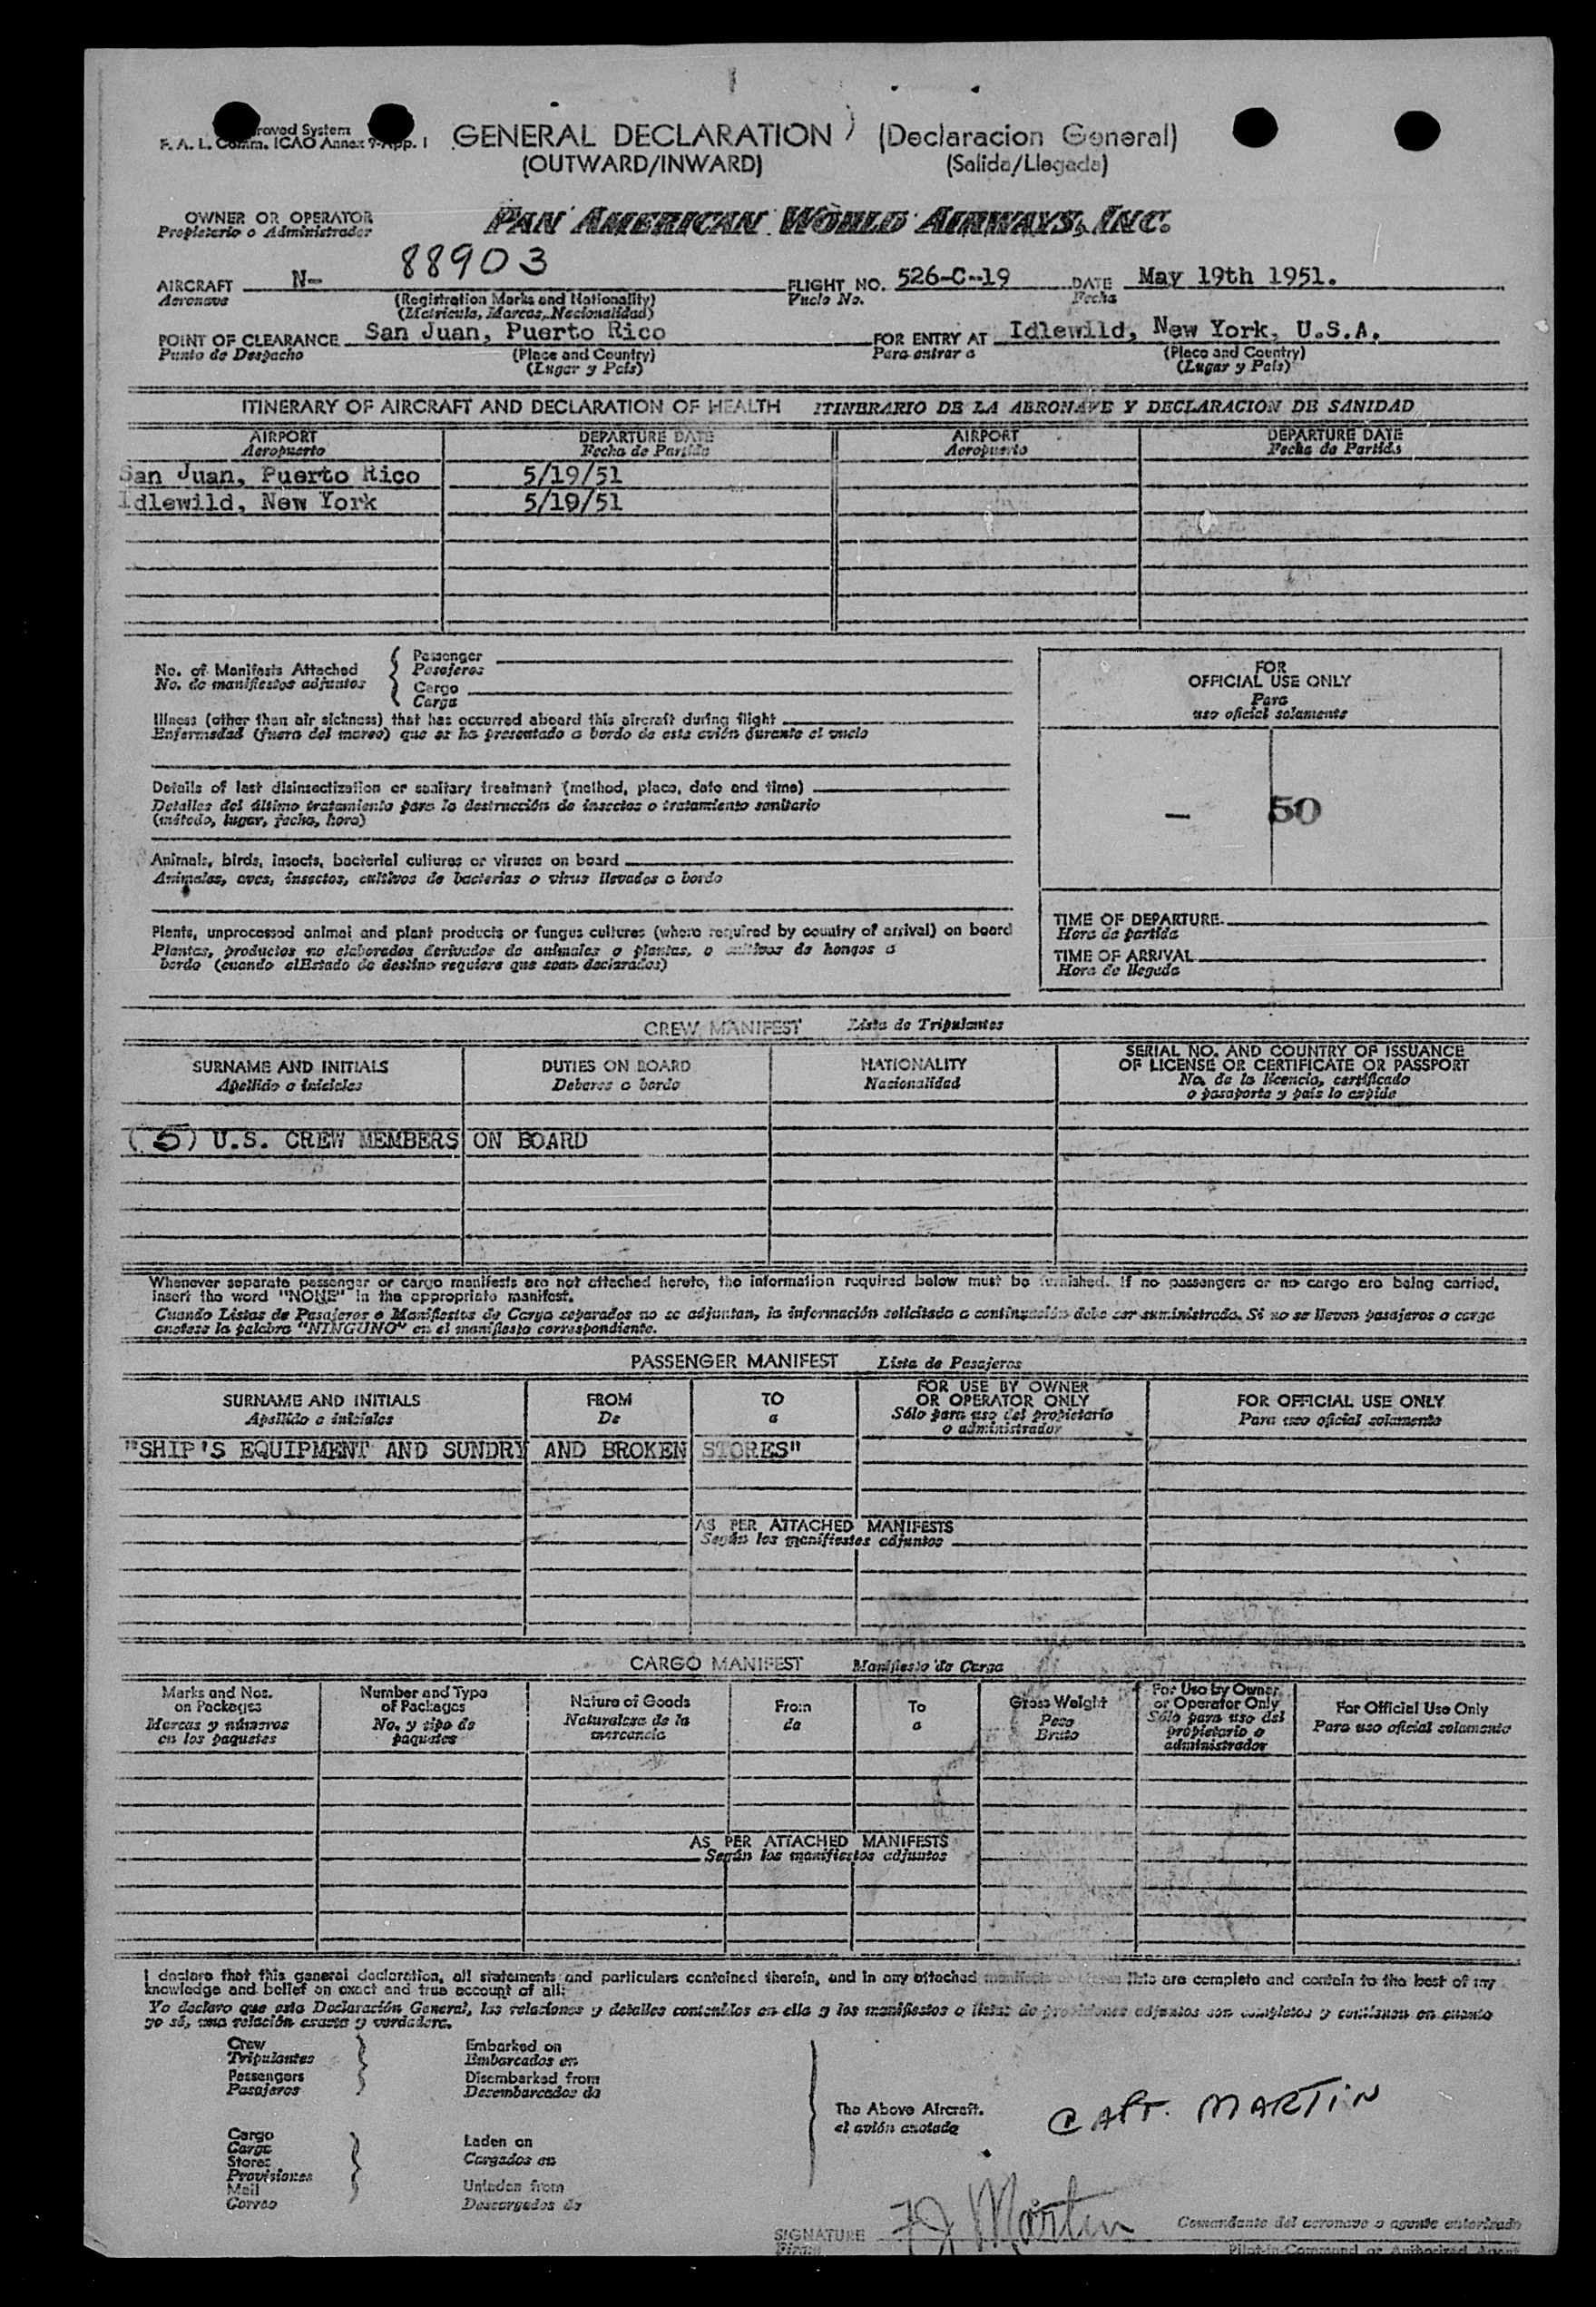 roved System
F. A. L. Comm. ICAO Annex 9-App. I
GENERAL DECLARATION (Declaracion General)
(OUTWARD/INWARD) (Salida/Llegada)
OWNER OR OPERATOR
Propietario o Administrador
PAN AMERICAN WORLD AIRWAYS, INC.
AIRCRAFT N- 88903 FLIGHT NO. 526-C-19 DATE May 19th 1951.
Aeronave (Registration Marks and Nationality) Vuelo No. Fecha
(Matricula, Marcas, Nacionalidad)
POINT OF CLEARANCE San Juan, Puerto Rico FOR ENTRY AT Idlewild, New York, U.S.A.
Punto de Despacho (Place and Country) Para entrar a (Place and Country)
(Lugar y País) (Lugar y País)
ITINERARY OF AIRCRAFT AND DECLARATION OF HEALTH ITINERARIO DE LA AERONAVE Y DECLARACION DE SANIDAD
AIRPORT DEPARTURE DATE AIRPORT DEPARTURE DATE
Aeropuerto Fecha de Partida Aeropuerto Fecha de Partida
San Juan, Puerto Rico 5/19/51
Idlewild, New York 5/19/51
No. of Manifests Attached
No. de manifiestos adjuntos
Passenger
Pasajeros
Cargo
Carga
Illness (other than air sickness) that has occurred aboard this aircraft during flight
Enfermedad (fuera del mareo) que se ha presentado a bordo de este avión durante el vuelo
Details of last disinsectization or sanitary treatment (method, place, date and time)
Detalles del último tratamiento para la destrucción de insectos o tratamiento sanitario
(método, lugar, fecha, hora)
Animals, birds, insects, bacterial cultures or viruses on board
Animales, aves, insectos, cultivos de bacterias o virus llevados a bordo
Plants, unprocessed animal and plant products or fungus cultures (where required by country of arrival) on board
Plantas, productos no elaborados derivados de animales o plantas, o cultivos de hongos a
bordo (cuando el Estado de destino requiera que sean declarados)
FOR
OFFICIAL USE ONLY
Para
uso oficial solamente
- 50
TIME OF DEPARTURE
Hora de partida
TIME OF ARRIVAL
Hora de llegada
CREW MANIFEST Lista de Tripulantes
SURNAME AND INITIALS DUTIES ON BOARD NATIONALITY SERIAL NO. AND COUNTRY OF ISSUANCE
OF LICENSE OR CERTIFICATE OR PASSPORT
Apellido o iniciales Deberes a bordo Nacionalidad No. de la licencia, certificado
o pasaporte y país lo expide
(5) U.S. CREW MEMBERS ON BOARD
Whenever separate passenger or cargo manifests are not attached hereto, the information required below must be furnished. If no passengers or no cargo are being carried,
insert the word "NONE" in the appropriate manifest.
Cuando Listas de Pasajeros o Manifiestos de Carga separados no se adjuntan, la información solicitada a continuación debe ser suministrada. Si no se lleven pasajeros o carga
anotese la palabra "NINGUNO" en el manifiesto correspondiente.
PASSENGER MANIFEST Lista de Pasajeros
SURNAME AND INITIALS FROM TO FOR USE BY OWNER
OR OPERATOR ONLY FOR OFFICIAL USE ONLY
Apellido e iniciales De a Sólo para uso del propietario
o administrador Para uso oficial solamente
"SHIP'S EQUIPMENT AND SUNDRY AND BROKEN STORES"
AS PER ATTACHED MANIFESTS
Según los manifiestos adjuntos
CARGO MANIFEST Manifiesto de Carga
Marks and Nos.
on Packages
Marcas y números
en los paquetes
Number and Type
of Packages
No. y tipo de
paquetes
Nature of Goods
Naturaleza de la
mercancia
From
de
To
a
Gross Weight
Peso
Bruto
For Use by Owner
or Operator Only
Sólo para uso del
propietario o
administrador
For Official Use Only
Para uso oficial solamente
AS PER ATTACHED MANIFESTS
Según los manifiestos adjuntos
I declare that this general declaration, all statements and particulars contained therein, and in any attached manifests or stores lists are complete and contain to the best of my
knowledge and belief an exact and true account of all:
Yo declaro que esta Declaración General, las relaciones y detalles contenidos en ella y los manifiestos o listas de provisiones adjuntos son completos y contienen en cuanto
yo sé, una relación exacta y verdadera.
Crew
Tripulantes
Passengers
Pasajeros
Embarked on
Embarcados en
Disembarked from
Desembarcados de
Cargo
Carga
Stores
Provisiones
Mail
Correo
Laden on
Cargados en
Unladen from
Descargados de
The Above Aircraft.
el avión anotado
CAPT. MARTIN
SIGNATURE Martin
Firma
Comandante del aeronave o agente autorizado
Pilot-in-Command or Authorized Agent